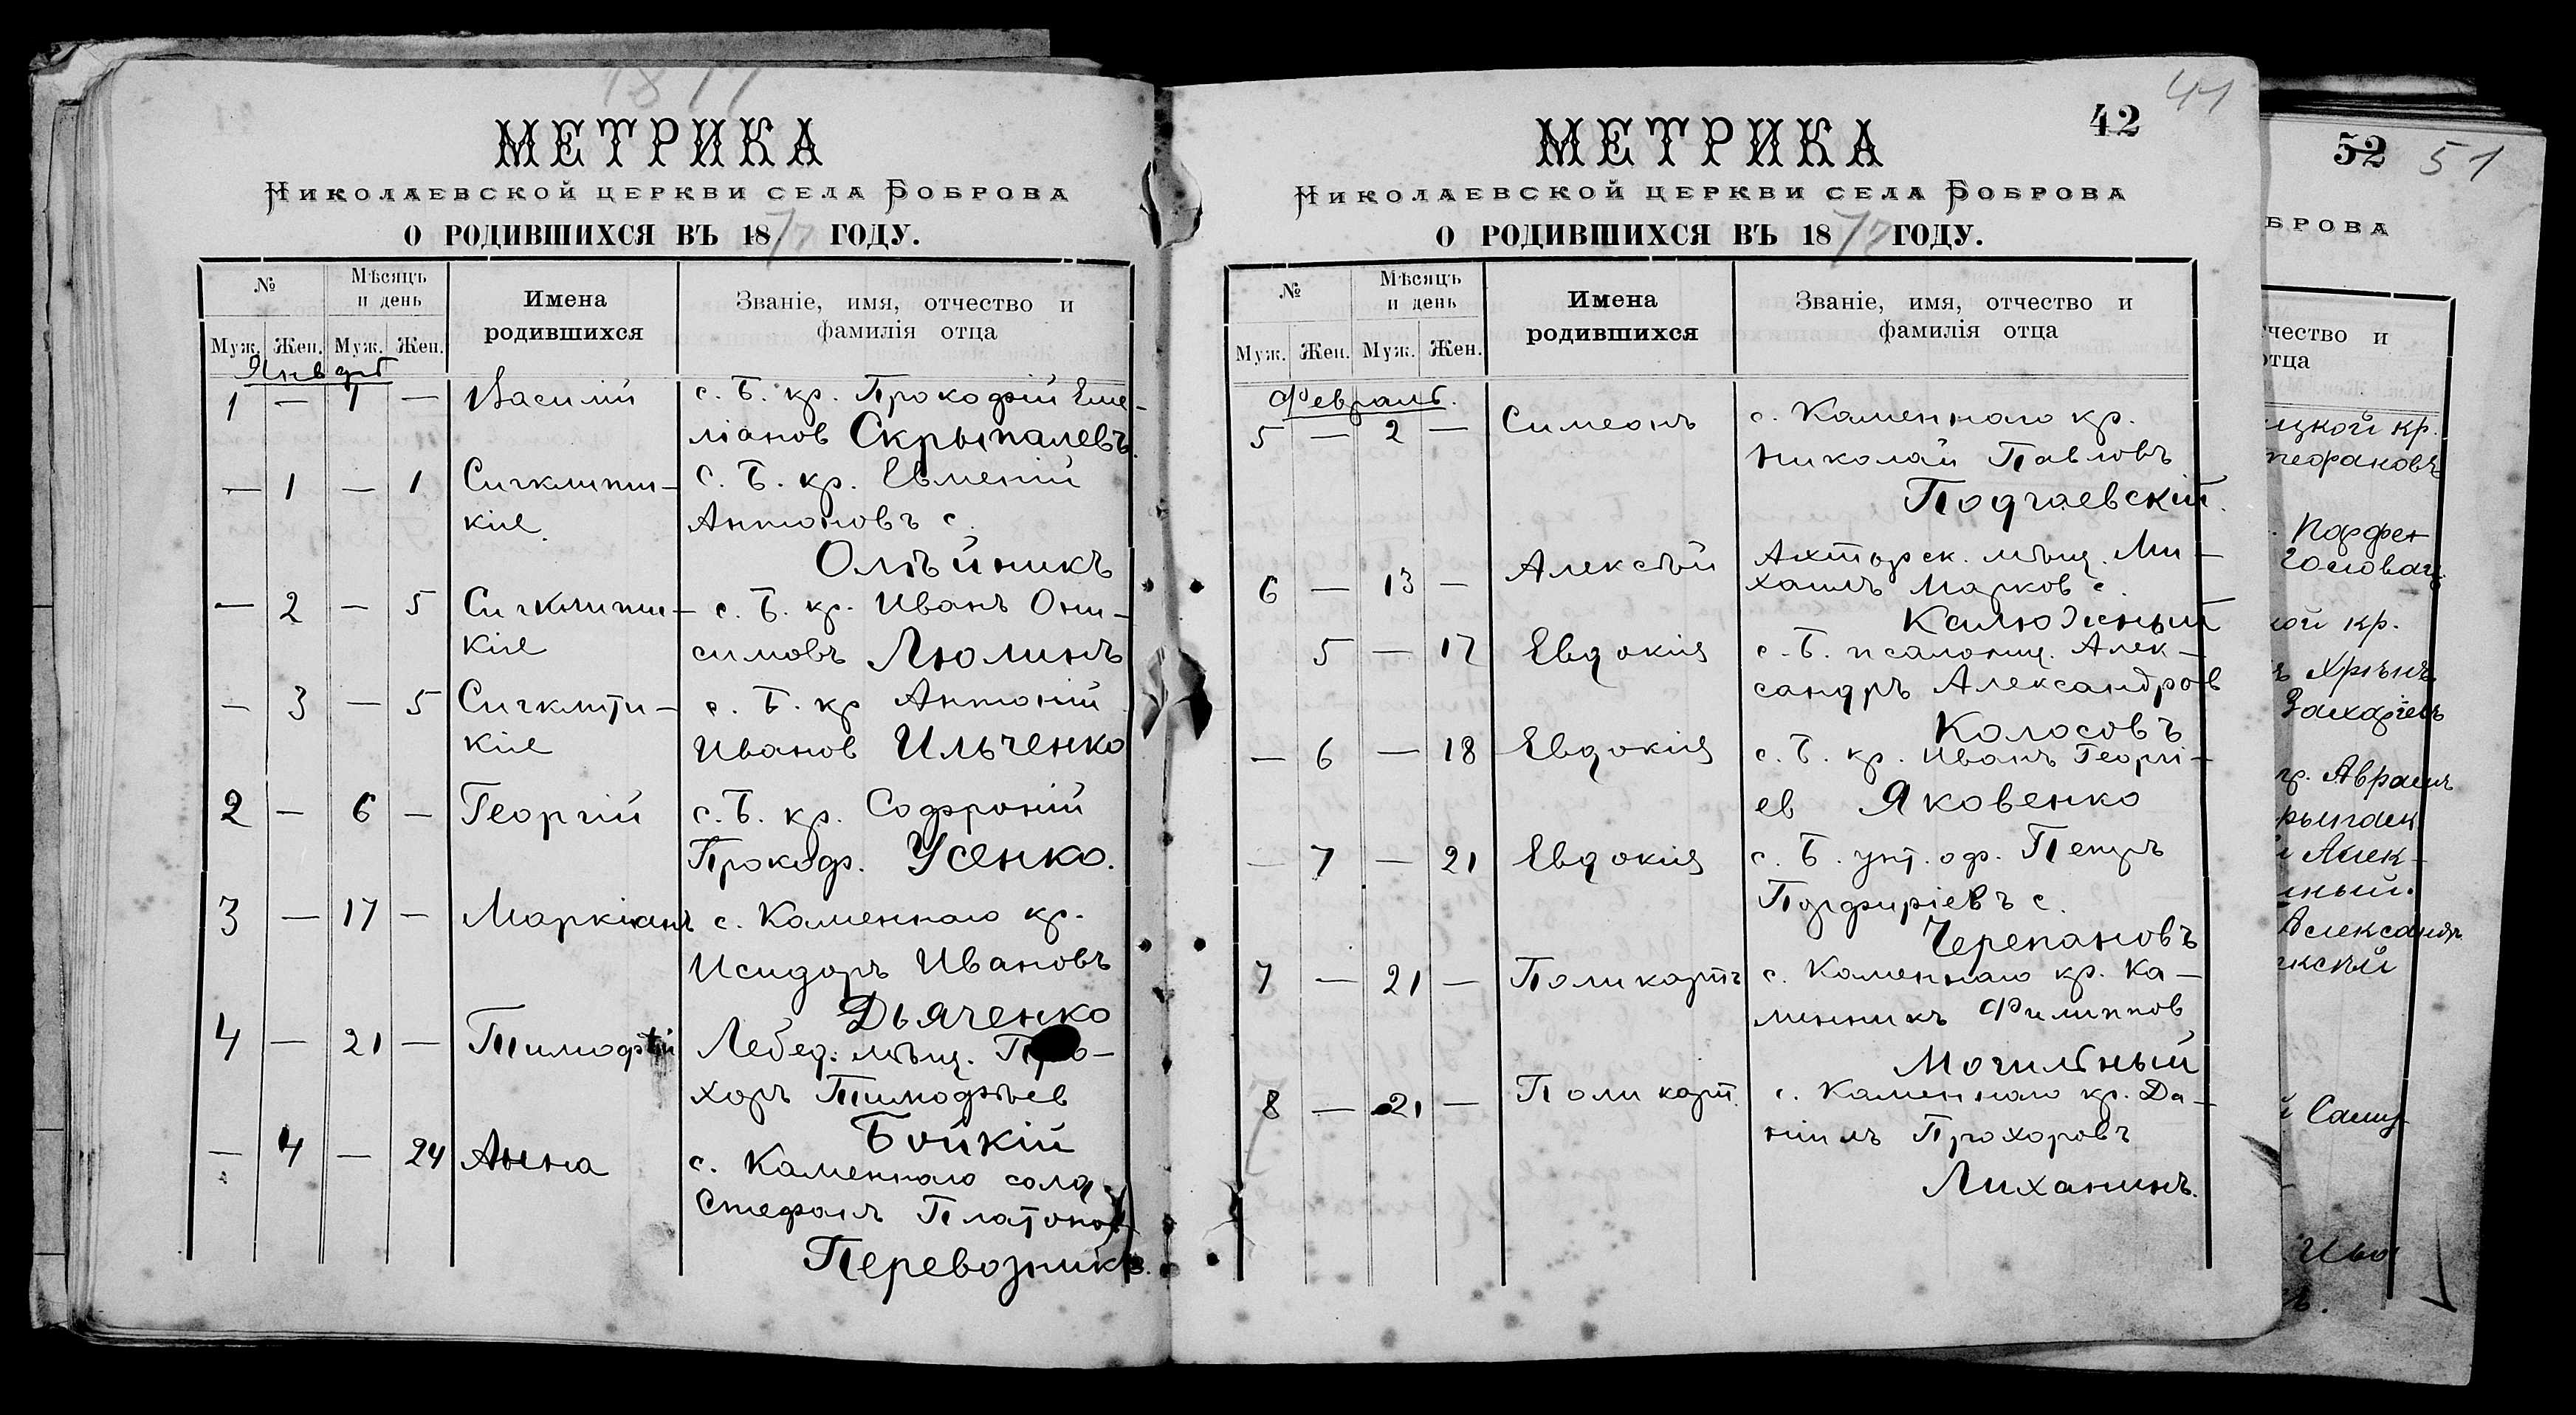 1877
МЕТРИКА
НИКОЛАЕВСКОЙ ЦЕРКВИ СЕЛА БОБРОВА
О РОДИВШИХСЯ ВЪ 1877 ГОДУ.
№
Мѣсяцъ и день
Имена родившихся
Званіе, имя, отчество и фамилія отца
Муж. Жен. Муж. Жен.
Январь
1 — 1 — Василій с. Б. кр. Прокофій Еме-
ліанов Скрыпалевъ.
— 1 — 1 Сигклити- с. Б. кр. Евменій
кіе. Антоновъ с.
Олѣйникъ
— 2 — 5 Сигклити- с. Б. кр. Иванъ Они-
кіе симовъ Люлинъ
— 3 — 5 Сигклити- с. Б. кр Антоній
кіе Иванов Ильченко
2 — 6 — Георгій с. Б. кр. Софроній
Прокоф. Усенко.
3 — 17 — Маркіанъ с. Каменнаго кр.
Исидоръ Ивановъ
Дьяченко
4 — 21 — Тимофѣй Лебед. мѣщ. Про-
хоръ Тимофѣев
Бойкій
— 4 — 24 Анна с. Каменнаго солд.
Стефанъ Платонов
Перевозникъ.
42 41
МЕТРИКА
НИКОЛАЕВСКОЙ ЦЕРКВИ СЕЛА БОБРОВА
О РОДИВШИХСЯ ВЪ 1877 ГОДУ.
№
Мѣсяцъ и день
Имена родившихся
Званіе, имя, отчество и фамилія отца
Муж. Жен. Муж. Жен.
Февраль.
5 — 2 — Симеонъ с. Каменнаго кр.
Николай Павловъ
Подгаевскій.
6 — 13 — Алексѣй Ахтырск. мѣщ. Ми-
хаилъ Марков с.
Калюжный
5 — 17 Евдокія с. Б. псаломщ. Алек-
сандръ Александров
Колосовъ
— 6 — 18 Евдокія с. Б. кр. Иванъ Георгі-
ев Яковенко
— 7 — 21 Евдокія с. Б. унт. оф. Петръ
Порфиріевъ с.
Черепановъ
7 — 21 — Поликарпъ с. Каменнаго кр. Ка-
линникъ Филиппов
Могильный
8 — 21 — Поликарп. с. Каменнаго кр. Да-
ніилъ Прохоровъ
Лиханинъ.
52 51
БРОВА
чество и
отца
цкой кр.
Парфен
Головач
ой кр.
Хрѣнъ
Захаріевъ
Аврамъ
Алек-
ный.
Александръ